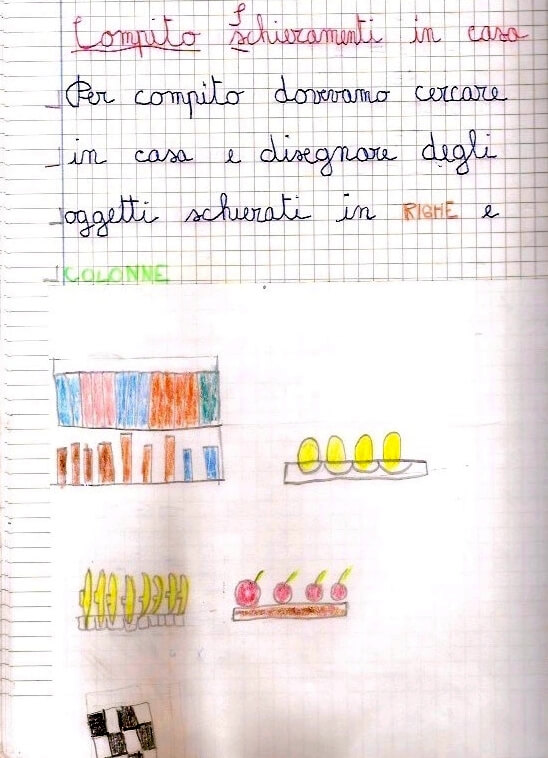 Compito Schieramenti in casa
Per compito dovevamo cercare
in casa e disegnare degli
oggetti schierati in RIGHE e
COLONNE